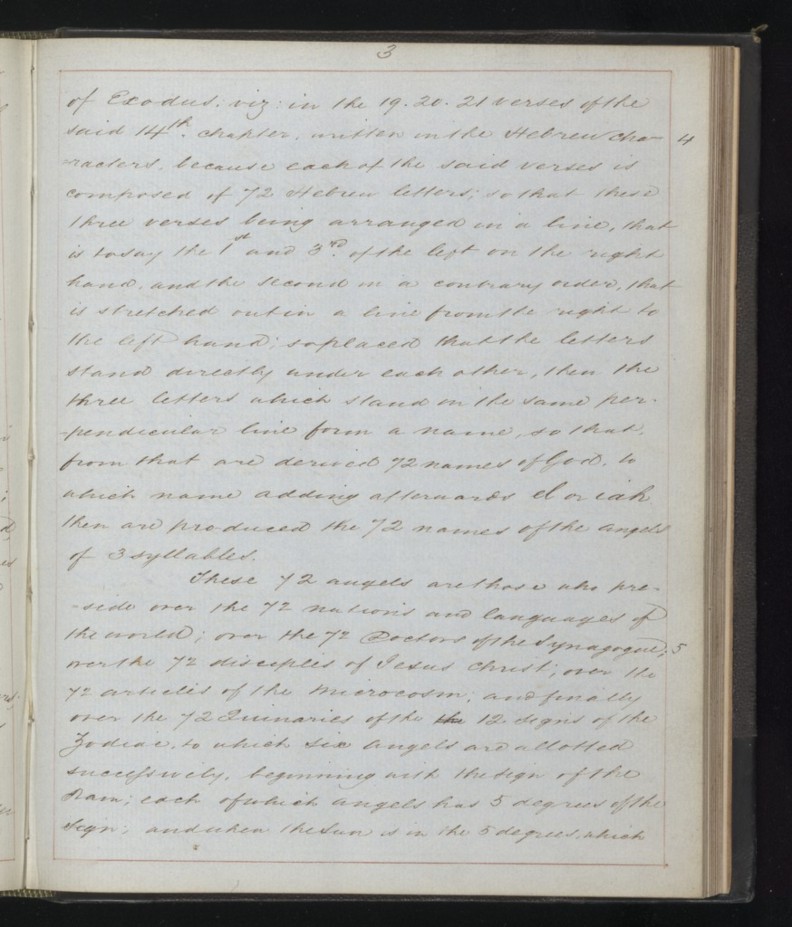 3
of Exodus; viz: in the 19. 20. 21 verses of the
said 14th. chapter, written in the Hebrew cha- 4
-racters, because each of the said verses is
composed of 72 Hebrew letters; so that these
three verses being arranged in a line, that
is to say the 1st and 3rd. of the left on the right
hand, and the second in a contrary order, that
is stretched out in a line from the right to
the left hand; so placed that the letters
stand directly under each other, then the
three letters which stand in the same per-
-pendicular line form a name, so that,
from that are derived 72 names of God, to
which name adding afterwards el or iah
then are produced the 72 names of the angels
of 3 syllables.
These 72 angels are those who pre-
-side over the 72 nations and languages of
the world; over the 72 Doctors of the Synagogue; 5
over the 72 disciples of Jesus Christ; over the
72 articles of the Microcosm; and finally
over the 72 Quinaries of the the 12 Signs of the
Zodiac, to which six angels are allotted
successively, beginning with the sign of the
Ram; each of which angels has 5 degrees of the
sign; and when the Sun is in the 5 degrees, which